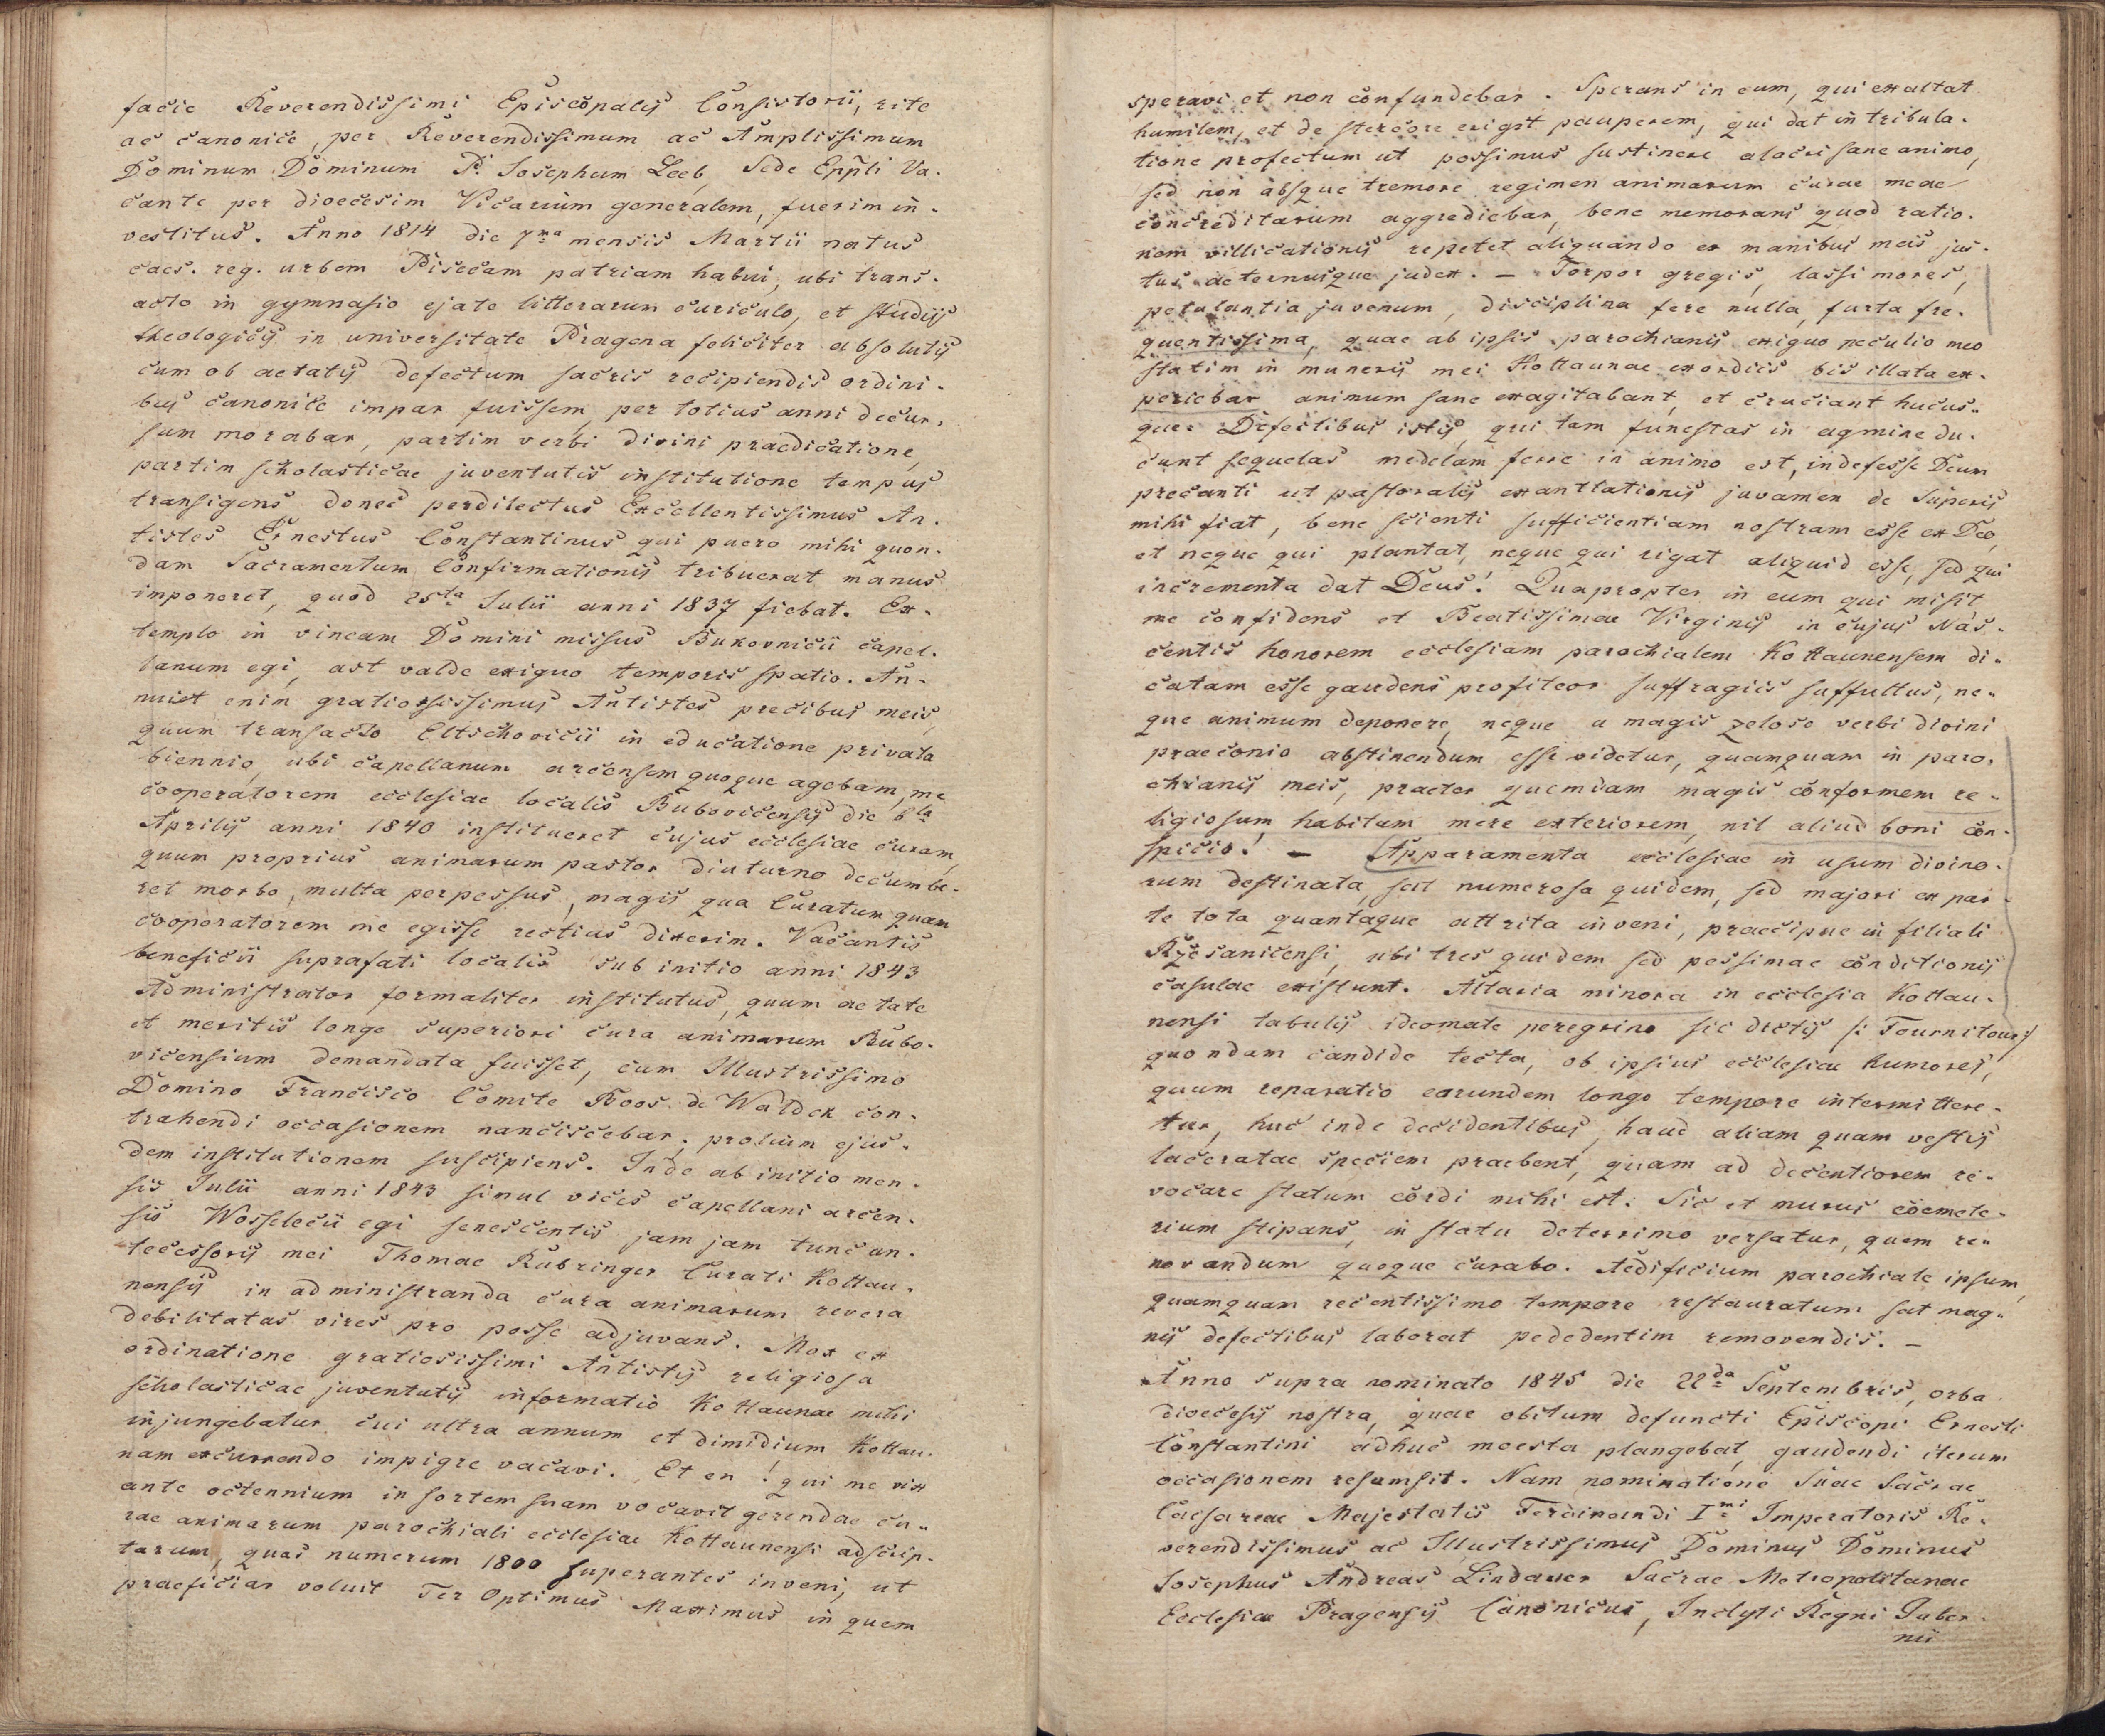 facie Reverendissimi Episcopalis Consistorii, rite
ac canonice, per Reverendissimum ac Amplissimum
Dominum Dominum P. Josephum Leeb, Sede Eppli Va-
cante per dioecesim Vicarium generalem, fuerim in-
vestitus. Anno 1814 die 7ma mensis Martii natus
caes. reg. urbem Pisecam patriam habui, ubi trans-
acto in gymnasio ejate litterarum curiculo, et studiis
theologicis in universitate Pragena feliciter absolutis
cum ob aetatis defectum sacris recipiendis ordini-
bus canonice impar fuissem, per totius anni decur-
sum morabar, partim verbi divini praedicatione,
partim scholasticae juventutis institutione tempus
transigens donec perdilectus Excellentissimus An-
tistes Ernestus Constantinus qui puero mihi quon-
dam Sacramentum Confirmationis tribuerat manus
imponeret, quod 25ta Julii anni 1837 fiebat. Ex-
templo in vineam Domini missus Bukovnicii capel-
lanum egi, ast valde exiguo temporis spatio. An-
nuit enim gratiosissimus Antistes precibus meis,
quum transacto Eltschovicii in educatione privata
biennio, ubi capellanum arcensem quoque agebam, me
cooperatorem ecclesiae localis Bubovicensis die 6ta
Aprilis anni 1840 institueret cujus ecclesiae curam,
quum proprius animarum pastor diuturno decumbe-
ret morbo, multa perpessus, magis qua Curatum quam
cooperatorem me egisse rectius dixerim. Vacantis
beneficii suprafati localis sub initio anni 1843
Administrator formaliter institutus, quum aetate
et meritis longe superiori cura animarum Bubo-
vicensium demandata fuisset, cum Illustrissimo
Domino Francisco Comite Boos de Waldek con-
trahendi occasionem nanciscebar, prolium ejus-
dem institutionem suscipiens. Inde ab initio men-
sis Julii anni 1843 simul vices capellani arcen-
sis Wosselecii egi senescentis jam jam tunc an-
tecessoris mei Thomae Rubringer Curati Kottau-
nensis in administranda cura animarum revera
debilitatas vires pro posse adjuvans. Mox ex
ordinatione gratiosissimi Antistis religiosa
scholasticae juventutis informatio Kottaunae mihi
injungebatur cui ultra annum et dimidium Kottau-
nam excurrendo impigre vacavi. Et en! qui me vix
ante octennium in sortem suam vocavit gerendae cu-
rae animarum parochiali ecclesiae Kottaunensi adscrip-
tarum, quas numerum 1800 superantes inveni, ut
praeficiar voluit Ter Optimus Maximus in quem
speravi et non confundebar. Sperans in eum, qui exaltat
humilem, et de stercore erigit pauperem, qui dat in tribula-
tione profectum ut possimus sustinere alacri sane animo,
sed non absque tremore regimen animarum curae meae
concreditarum aggrediebar, bene memorans quod ratio-
nem villicationis repetet aliquando ex manibus meis jus-
tus aeternusque judex. - Torpor gregis, lassi mores,
petulantia juvenum, disciplina fere nulla, furta fre-
quentissima, quae ab ipsis parochianis exiguo peculio meo
statim in muneris mei Kottaunae exordiis bis illata ex-
periebar animum sane exagitabant, et cruciant hucus-
que. Defectibus istis, qui tam funestas in agmine du-
cunt sequelas medelam ferre in animo est, indefesse Deum
precanti ut pastoralis exantlationis juvamen de Superis
mihi fiat, bene scienti sufficientiam nostram esse ex Deo,
et neque qui plantat, neque qui rigat aliquid esse, sed qui
incrementa dat Deus! Quapropter in eum qui misit
me confidens et Beatissimae Virginis in cujus Nas-
centis honorem ecclesiam parochialem Kottaunensem di-
catam esse gaudens profiteor suffragiis suffultus, ne-
que animum deponere, neque a magis zeloso verbi divini
praeconio abstinendum esse videtur, quamquam in paro-
chianis meis, praeter quemdam magis conformem re-
ligiosum habitum mere exteriorem, nil aliud boni con-
spicio! - Apparamenta ecclesiae in usum divino-
rum destinata, sat numerosa quidem, sed majori ex par-
te tota quantaque attrita inveni, praecipue in filiali
Ryčsanicensi, ubi tres quidem sed pessimae conditionis
casulae existunt. Altaria minora in ecclesia Kottau-
nensi tabulis ideomate peregrino sic dictis /: Fournitour :/
quondam candide tecta, ob ipsius ecclesiae humores,
quum reparatio earundem longo tempore intermittere-
tur, huc inde decidentibus, haud aliam quam vestis
laceratae speciem praebent, quam ad decentiorem re-
vocare statum cordi mihi est. Sic et murus coemete-
rium stipans, in statu deterrimo versatur, quem re-
novandum quoque curabo. Aedificium parochiale ipsum,
quamquam recentissimo tempore restauratum sat mag-
nis defectibus laborat pededentim removendis. -
Anno supra nominato 1845 die 22da Septembris, orba
dioecesis nostra, quae obitum defuncti Episcopi Ernesti
Constantini adhuc moesta plangebat, gaudendi iterum
occasionem resumsit. Nam nominatione Suae Sacrae
Caesareae Majestatis Ferdinandi Imi Imperatoris Re-
verendissimus ac Illustrissimus Dominus Dominus
Josephus Andreas Lindauer Sacrae Metropolitanae
Ecclesiae Pragensis Canonicus, Inclyti Regni Guber-
nii